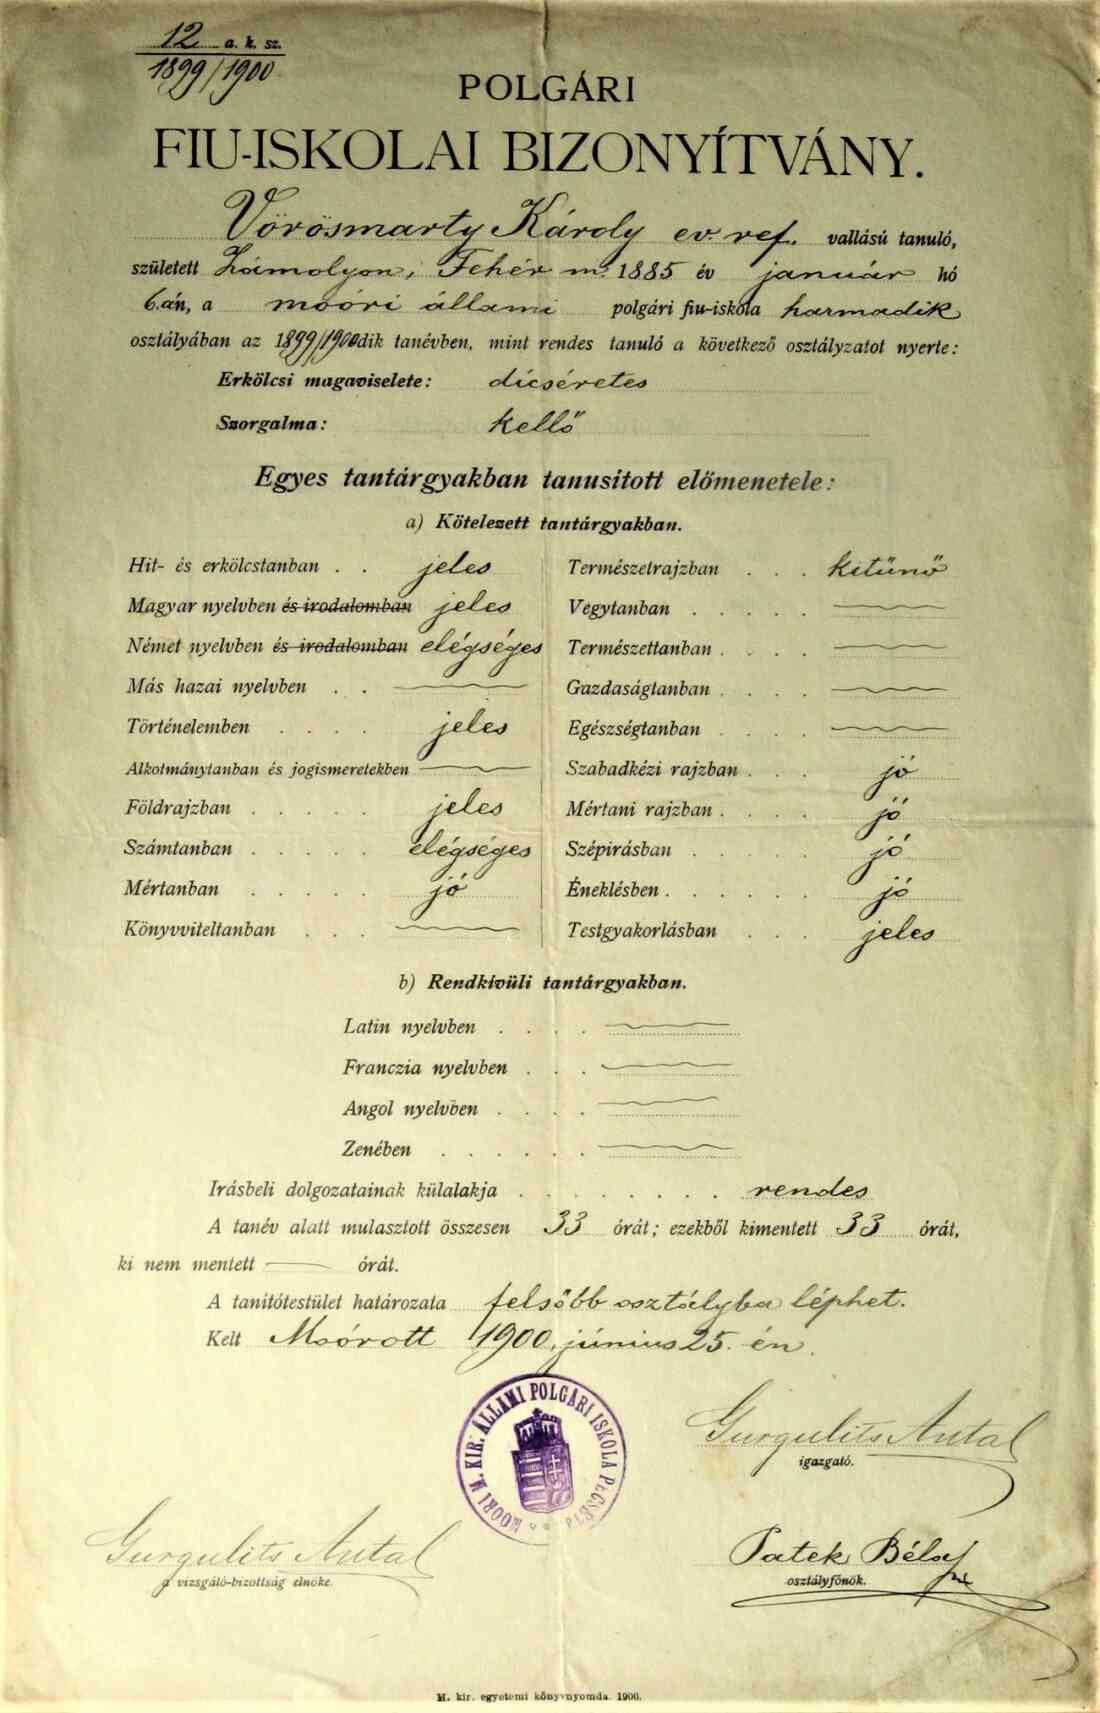 12 a. k. sz.
1899/1900
POLGÁRI
FIU-ISKOLAI BIZONYÍTVÁNY.
Vörösmarty Károly ev. ref. vallású tanuló,
született Zámolyon, Fehér m. 1885 év január hó
6.án, a moóri állami polgári fiu-iskola harmadik
osztályában az 1899/1900dik tanévben, mint rendes tanuló a következő osztályzatot nyerte:
Erkölcsi magaviselete: dicséretes
Szorgalma: kellő
Egyes tantárgyakban tanusított előmenetele:
a) Kötelezett tantárgyakban.
Hit- és erkölcstanban . . jeles
Magyar nyelvben és irodalomban jeles
Német nyelvben és irodalomban elégséges
Más hazai nyelvben . .
Történelemben . . . . jeles
Alkotmánytanban és jogismeretekben
Földrajzban . . . . . jeles
Számtanban . . . . . elégséges
Mértanban . . . . . jó
Könyvviteltanban . . .
Természetrajzban . . . kitünő
Vegytanban . . . . .
Természettanban . . . .
Gazdaságtanban . . . .
Egészségtanban . . . .
Szabadkézi rajzban . . . jó
Mértani rajzban . . . . jó
Szépirásban . . . . . jó
Éneklésben . . . . . . jó
Testgyakorlásban . . . jeles
b) Rendkivüli tantárgyakban.
Latin nyelvben . . . .
Franczia nyelvben . . .
Angol nyelvben . . . .
Zenében . . . . . .
Irásbeli dolgozatainak külalakja . . . . . . . . rendes
A tanév alatt mulasztott összesen 33 órát; ezekből kimentett 33 órát,
ki nem mentett órát.
A tanítótestület határozata felsőbb osztályba léphet.
Kelt Moórott 1900. június 25. én.
MOORI M. KIR. ÁLLAMI POLGÁRI ISKOLA PECSÉTJE
Gurgulits Antal
igazgató.
Gurgulits Antal
a vizsgáló-bizottság elnöke.
Patek Béla
osztályfőnök.
M. kir. egyetemi könyvnyomda. 1900.